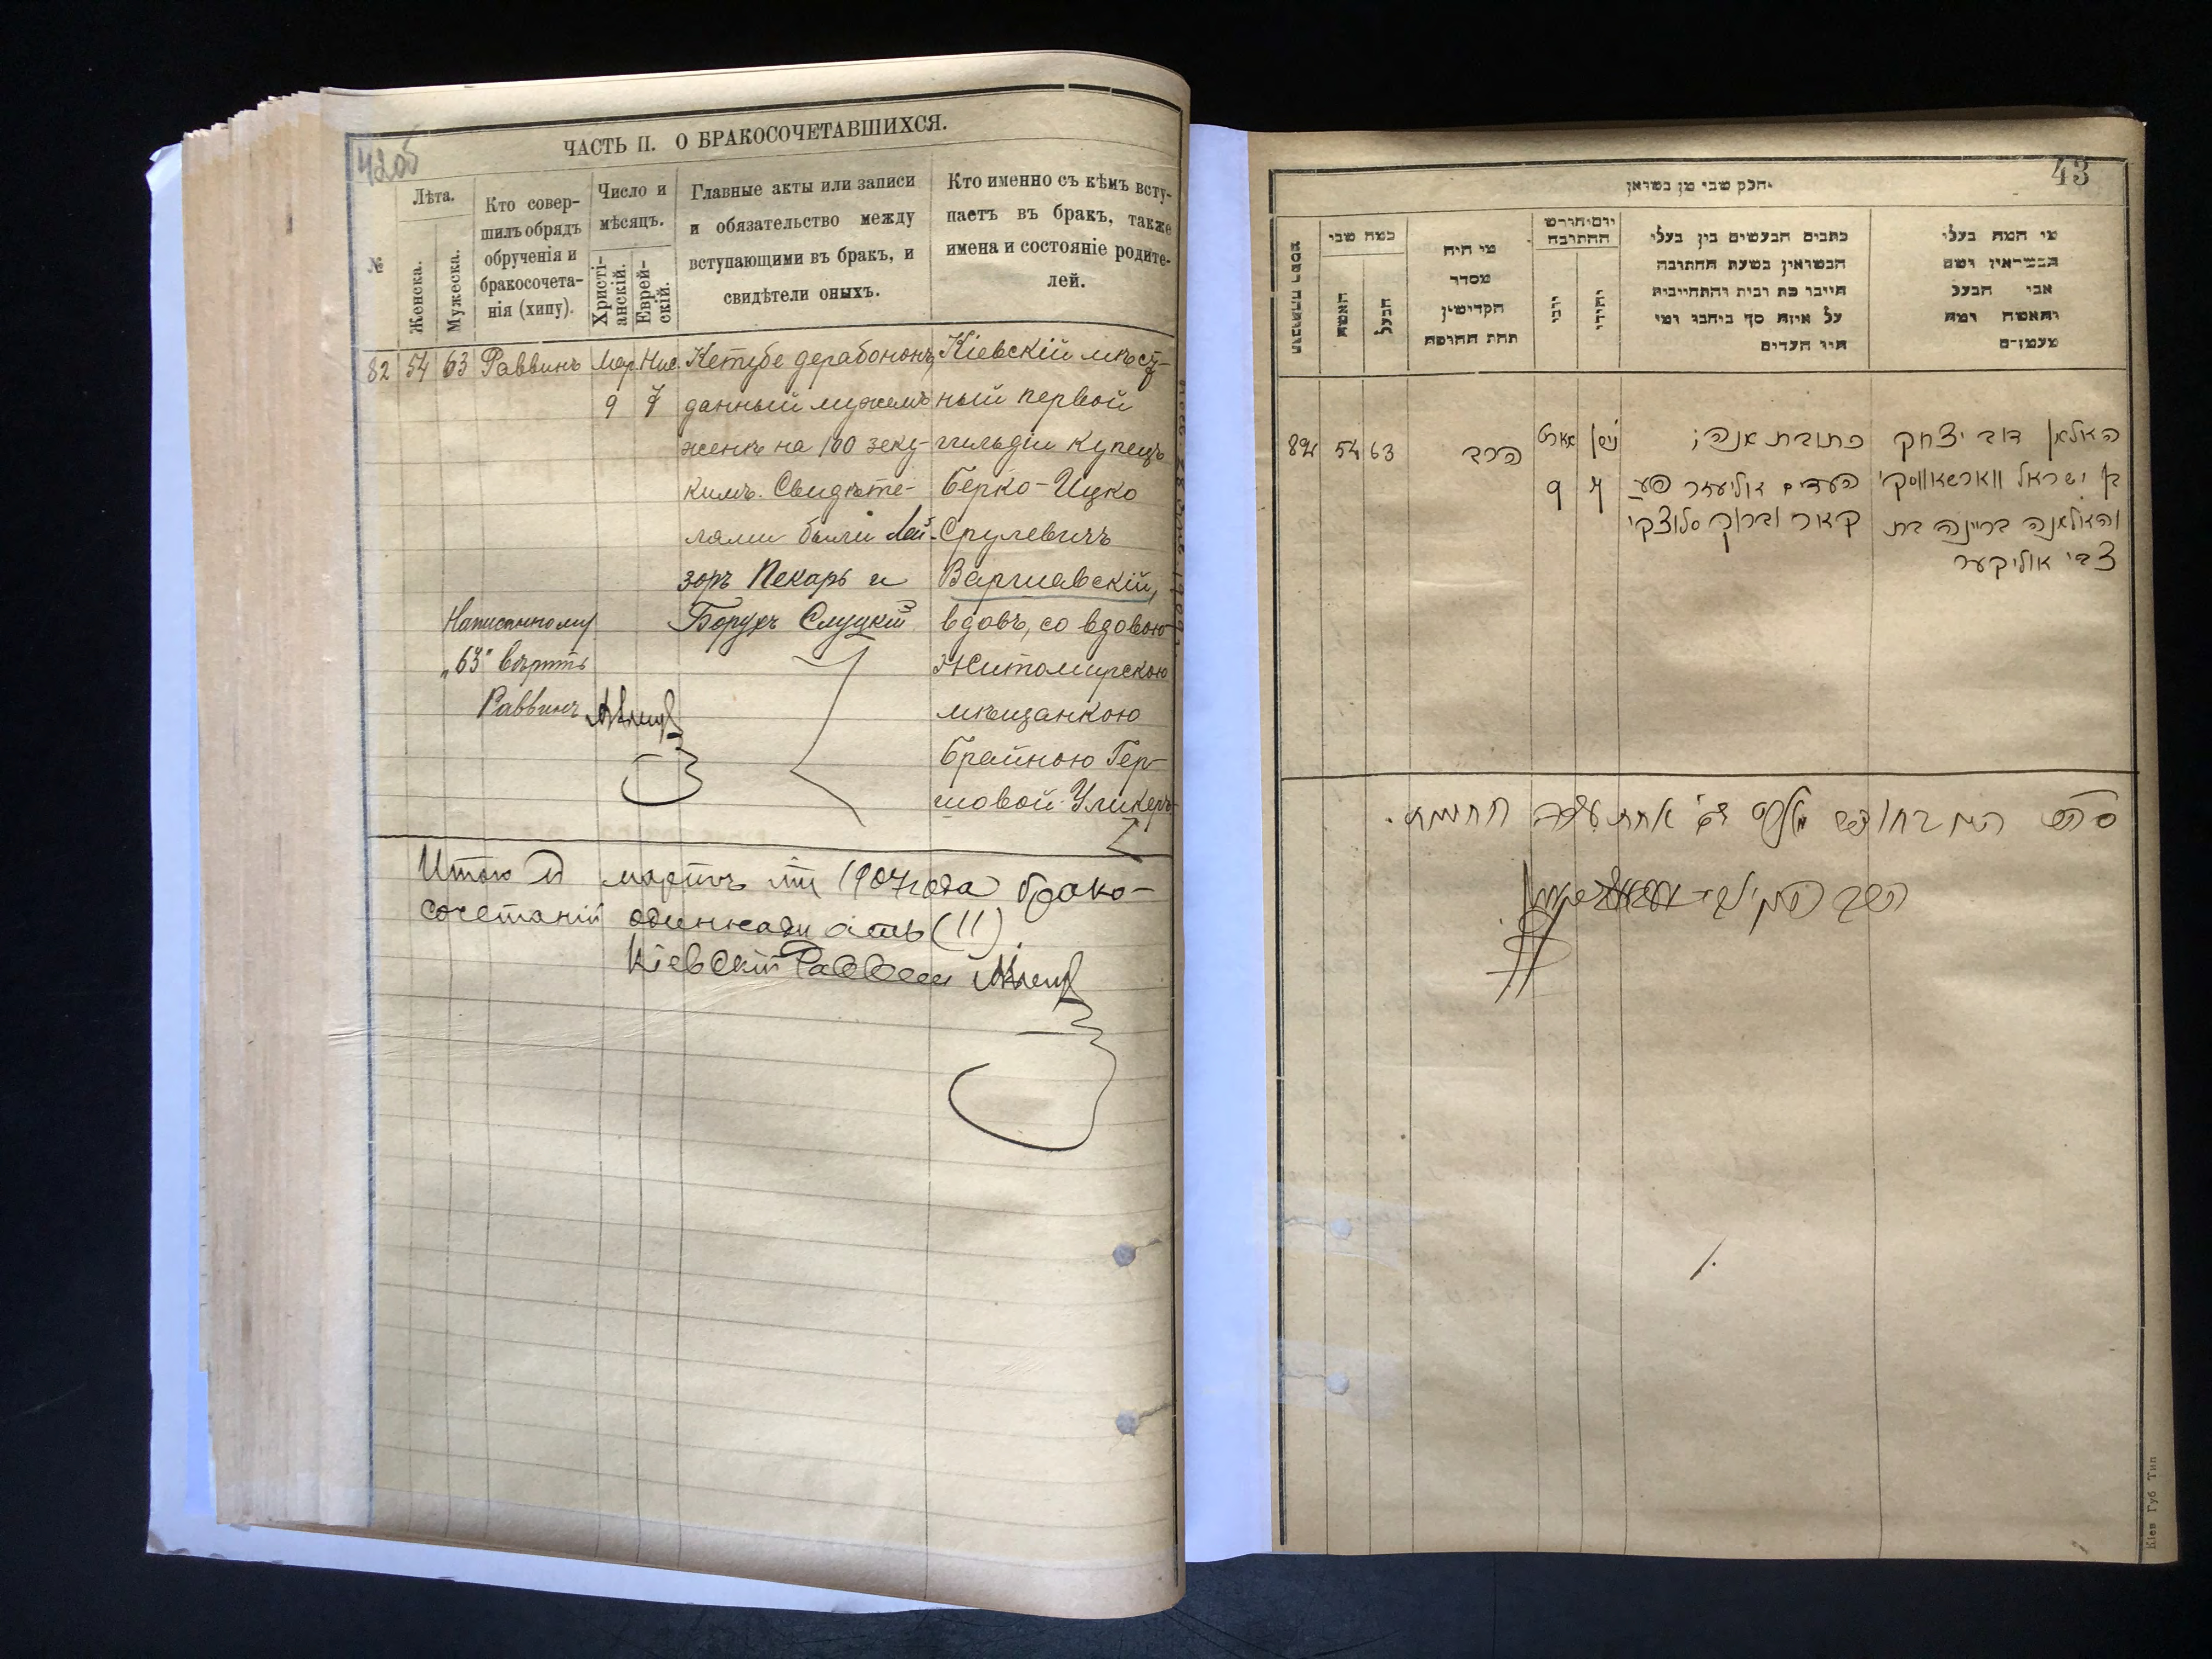 42об
ЧАСТЬ II. О БРАКОСОЧЕТАВШИХСЯ.
№
Лѣта.
Женска.
Мужеска.
Кто совер-
шилъ обрядъ
обрученія и
бракосочета-
нія (хипу).
Число и
мѣсяцъ.
Христі-
анскій.
Еврей-
скій.
Главные акты или записи
и обязательство между
вступающими въ бракъ, и
свидѣтели оныхъ.
Кто именно съ кѣмъ всту-
паетъ въ бракъ, также
имена и состояніе родите-
лей.
82 54 63 Раввинъ Мар. Нис.
9 7
Кетубе дерабононъ,
данный мужемъ
женѣ на 100 зеку-
кимъ. Свидѣте-
лями были Лей-
зоръ Пекарь и
Борухъ Слуцкій
Кіевскій
ный первой
гильдіи купецъ
Берко-Ицко
Срулевичъ
Варшавскій,
вдовъ, со вдовою
Житомирскою
мѣщанкою
Брайною Гер-
шовой Уликеръ
Написанному
„63" вѣрить
Раввинъ
Итого въ мартѣ мѣц 1907 года брако-
сочетаній одиннадцать (11).
Кіевскій Раввинъ
43
חלק שני מן נשואין
מי המה בעלי
הנשואין ושם
אבי הבעל
והאשה ומה
מעמדם
כתבים הנעשים בין בעלי
הנשואין בשעת החתונה
חייבו כת ובית והתחייבות
על איזה סך ביחבו ומי
היו העדים
יום וחודש
החתונה
יהודי
נוצרי
מי היה
מסדר
הקדושין
תחת החופה
כמה שני
הבעל
האשה
82 54 63 הרב
מארט ניסן
9 7
כתובת אנה;
העדים אליעזר פע
קאר וברוך סלוצקי
האלמן דוב יצחק
בן ישראל ווארשאווסקי
והאלמנה בריינה בת
צבי אוליקער
Кіев Губ Тип